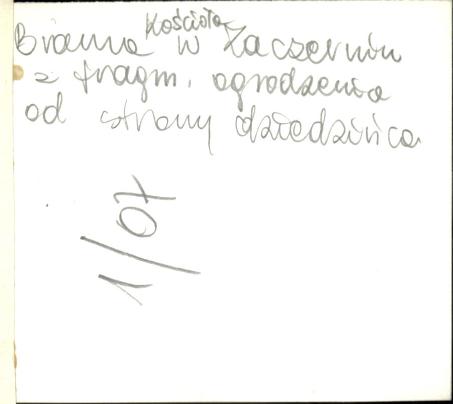 Brama Kościoła w Zaczerniu
z fragm. ogrodzenia
od strony dziedzińca
1/07